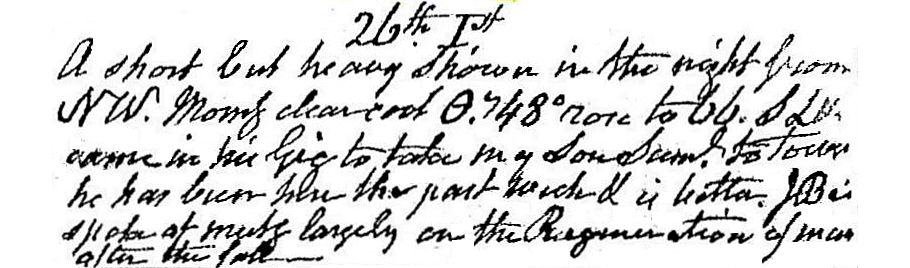 26th 1st
A short but heavy shower in the night from
NW. Morng clear cool 0.748° rose to 66. S
came in his Gig to take my Son Saml. to Town
he has been here the past week & is better. J
spoke at meetg largely on the Regeneration of man
after the fall